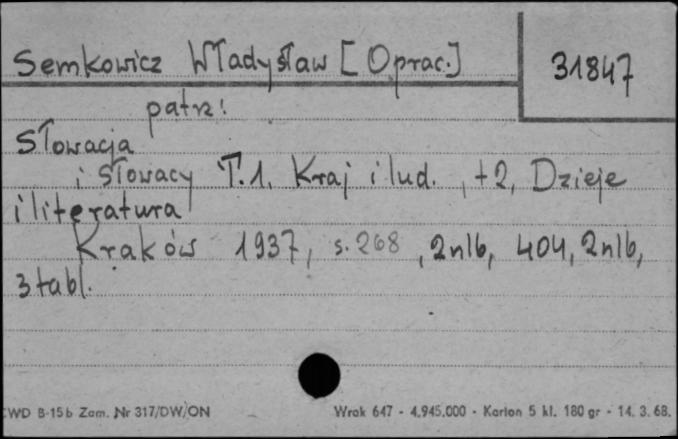 Semkowicz Władysław [Oprac.]
31847
patrz:
Słowacja
i Słowacy T.1. Kraj i lud. , t 2, Dzieje
i literatura
Kraków 1937, s. 268 , 2 nlb, 404, 2 nlb,
3 tabl.
CWD B-15b Zam. Nr 317/DW/ON
Wrak 647 - 4.945.000 - Karton 5 kl. 180 gr - 14. 3. 68.